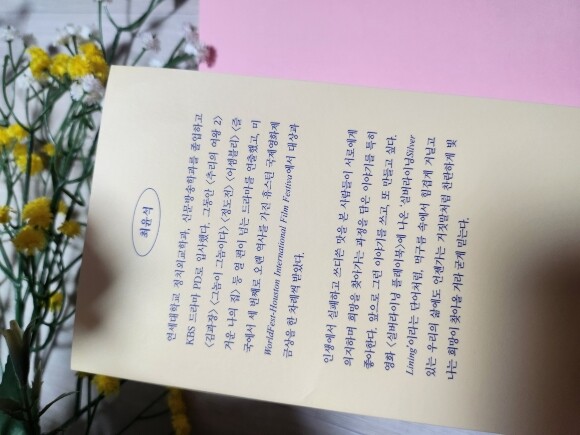 최윤석
연세대학교 정치외교학과, 신문방송학과를 졸업하고
KBS 드라마 PD로 입사했다. 그동안 〈추리의 여왕 2〉
〈김과장〉 〈그놈이 그놈이다〉 〈정도전〉 〈어셈블리〉 〈즐
거운 나의 집〉 등 열 편이 넘는 드라마를 연출했고, 미
국에서 세 번째로 오랜 역사를 가진 휴스턴 국제영화제
WorldFest-Houston International Film Festival에서 대상과
금상을 한 차례씩 받았다.
인생에서 실패하고 쓰디쓴 맛을 본 사람들이 서로에게
의지하며 희망을 찾아가는 과정을 담은 이야기를 특히
좋아한다. 앞으로 그런 이야기를 쓰고, 또 만들고 싶다.
영화 〈실버라이닝 플레이북〉에 나온 '실버라이닝Silver
Lining'이라는 단어처럼, 먹구름 속에서 힘겹게 거닐고
있는 우리의 삶에도 언젠가는 거짓말처럼 찬란하게 빛
나는 희망이 찾아올 거라 굳게 믿는다.